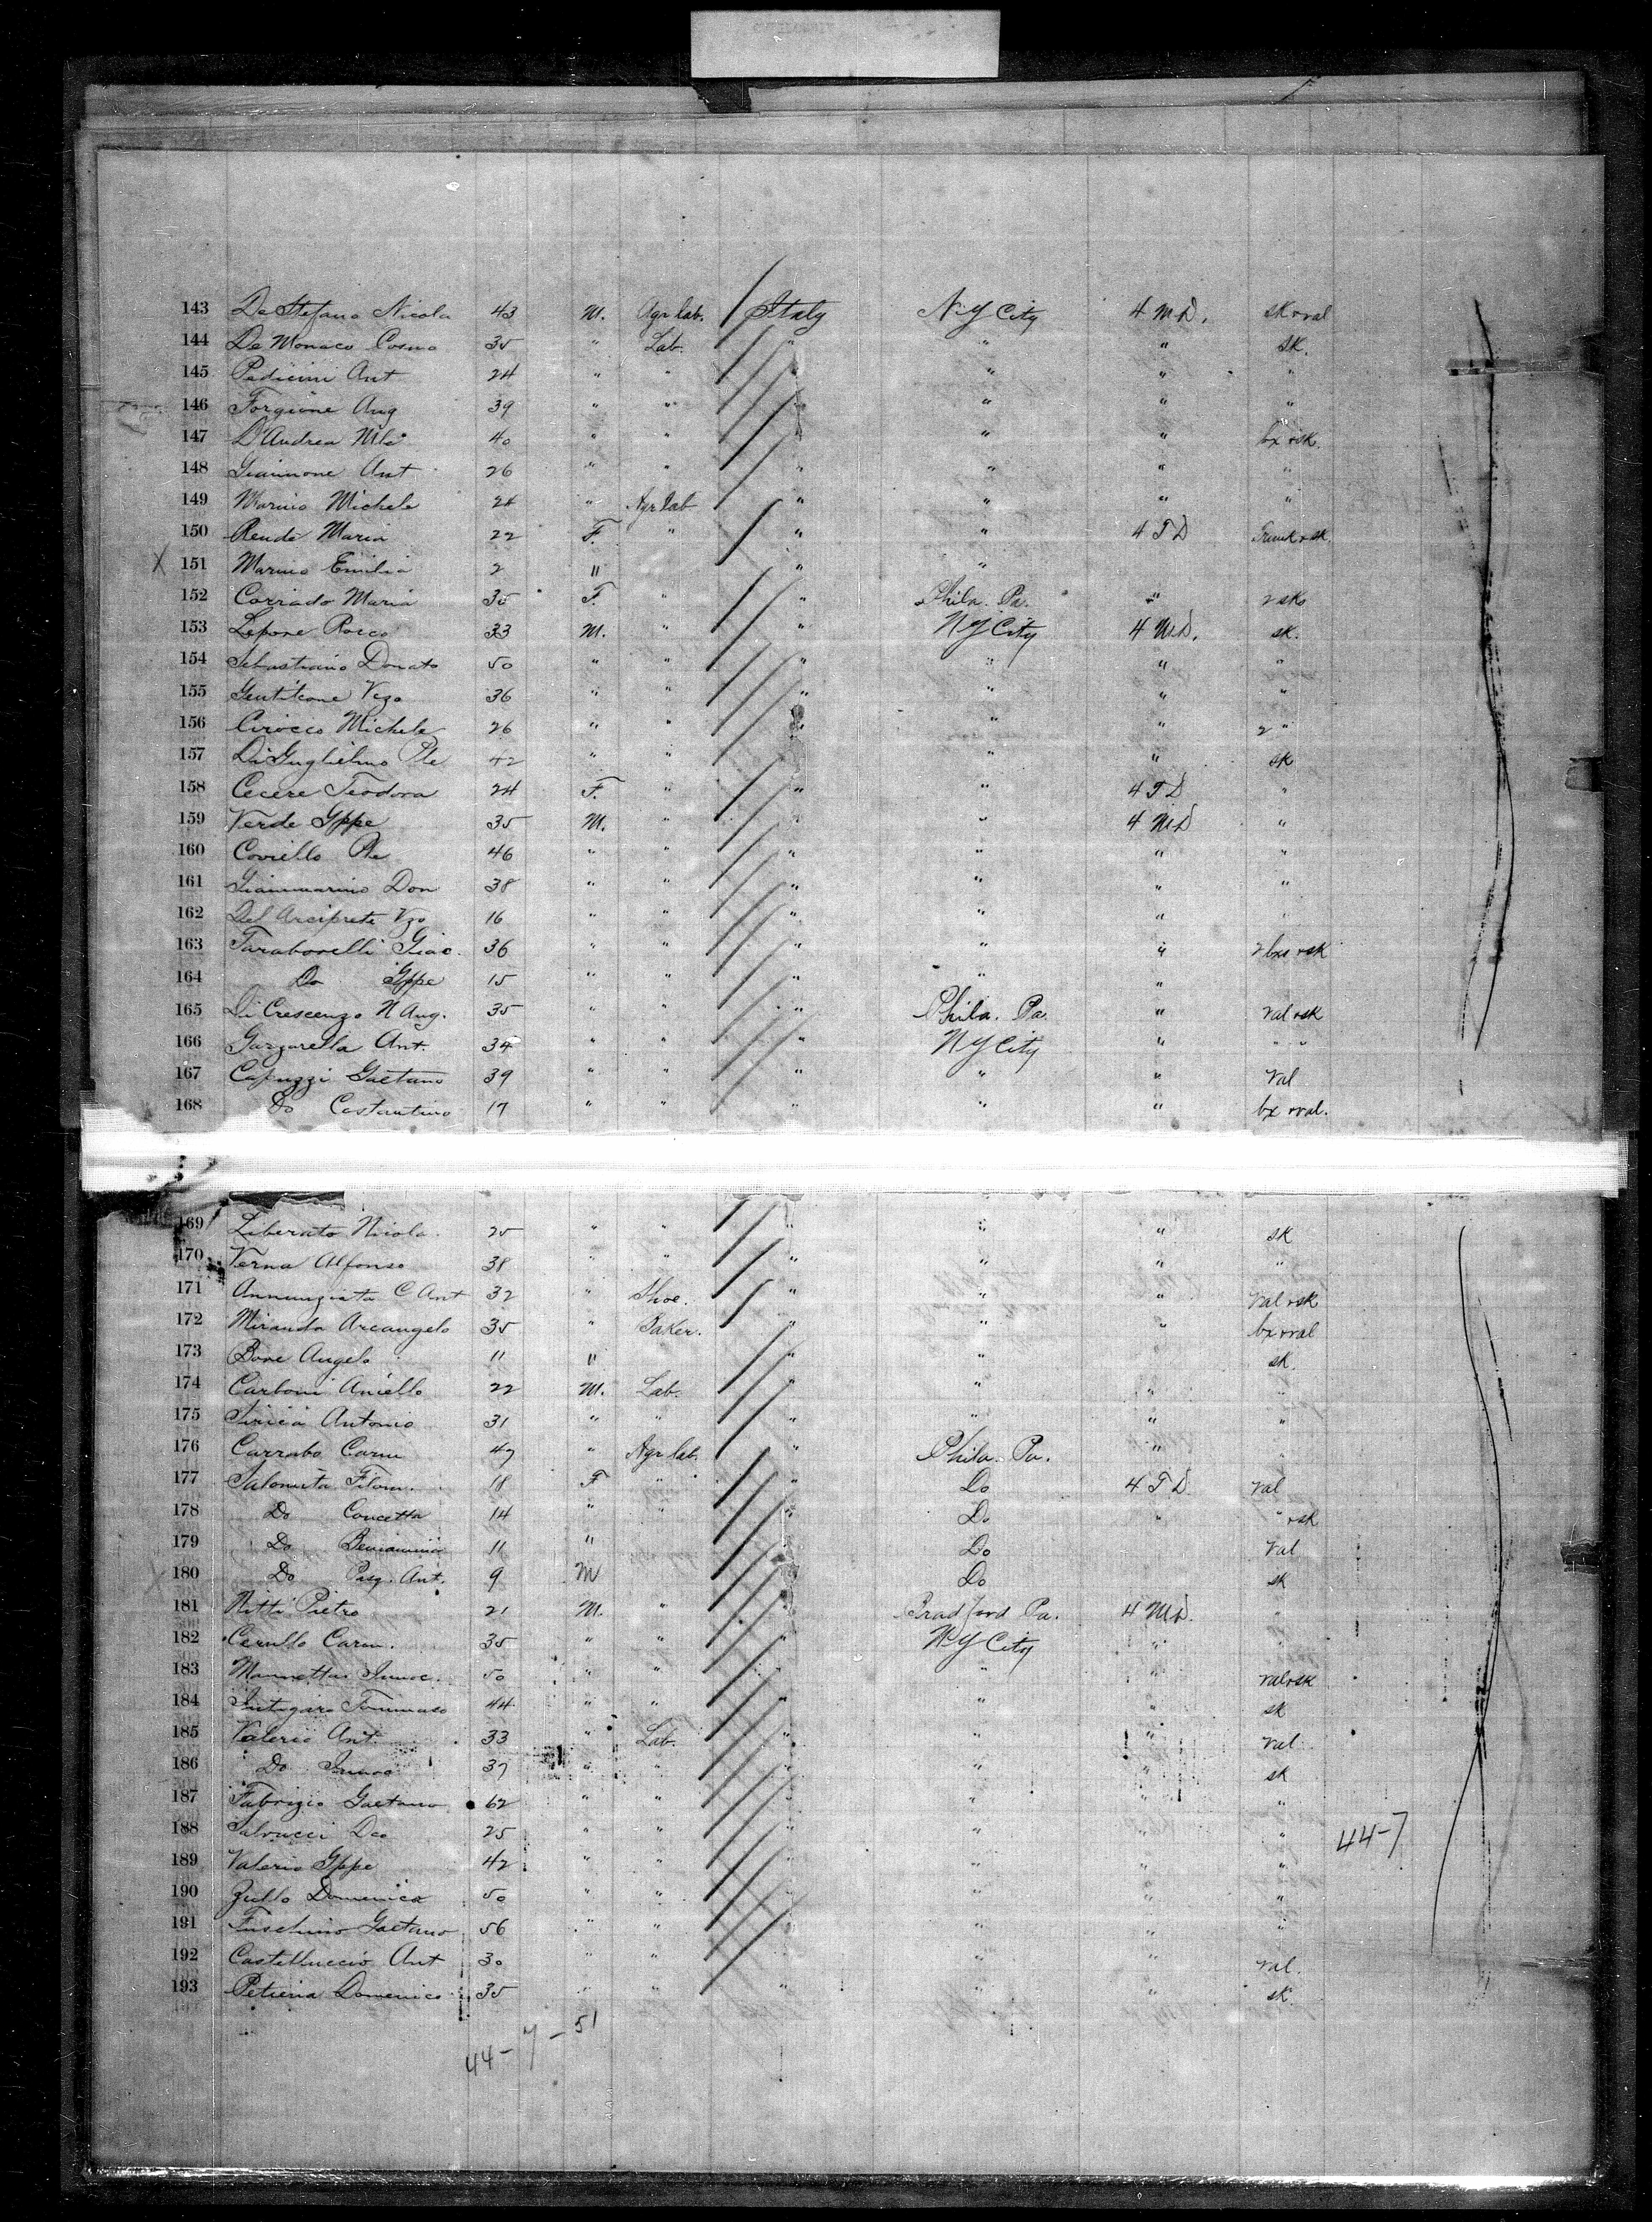 143 De Stefano Nicola 43 M. Agr lab. Italy N Y City 4 M D. sk & val
144 De Monaco Cosmo 35 " Lab. " " " sk.
145 Pedicini Ant 24 " " " " " "
146 Forgione Ang 39 " " " " " "
147 D'Andrea Mle 40 " " " " " bx & sk.
148 Giannone Ant 26 " " " " " "
149 Marino Michele 24 " Agr lab " " " "
150 Renda Maria 22 F. " " " 4 T D Trunk & sk.
X 151 Marino Emilia 2 " " "
152 Corrado Maria 35 F. " " Phila. Pa. " 2 sks
153 Lepore Rocco 33 M. " " N Y City 4 M D. sk.
154 Sebastiano Donato 50 " " " " " "
155 Vzo 36 " " " " " "
156 Cirocco Michele 26 " " " " " 2 "
157 Di Guglielmo Ple 42 " " " " " sk
158 Cecere Teodora 24 F. " " " 4 T D "
159 Verde Gppe 35 M. " " " 4 M D "
160 Coviello Ple 46 " " " " " "
161 Gianmarino Don 38 " " " " " "
162 Del Arciprete Vzo 16 " " " " " "
163 Taraborelli Giac. 36 " " " " " 2 bxs & sk
164 Do Gppe 15 " " " " "
165 Di Crescenzo N Ang. 35 " " " Phila. Pa. " val & sk
166 Garzarella Ant. 34 " " " N Y City " " "
167 Capuzzi Gaetano 39 " " " " " Val
168 Do Costantino 17 " " " " " bx & val.
169 Liberato Nicola. 25 " " " " " sk
170 Verna Alfonso 38 " " " " " "
171 Annunziata C Ant 32 " Shoe. " " " Val & sk
172 Miranda Arcangelo 35 " Baker. " " " bx & val
173 Bove Angelo 11 " " " sk.
174 Carboni Aniello 22 M. Lab. " " " "
175 Antonio 31 " " " " " "
176 Carrabo Carm 47 " Agr lab. " Phila. Pa. " "
177 Filom. 18 F " " Do 4 T D Val
178 Do Concetta 14 " " " Do " " & sk
179 Do Beniamina 11 " " Do Val
180 Do Pasq. Ant. 9 M " Do sk
181 Nitti Pietro 21 M. " " Bradford Pa. 4 M D. "
182 Cerullo Carm. 35 " " " N Y City " "
183 Mannetta Innoc. 50 " " " " " val & sk
184 Tommaso 44 " " " " " sk
185 Valerio Ant. 33 " Lab. " " " Val
186 Do Innoc 37 " " " " " sk
187 Fabrizio Gaetano 62 " " " " " "
188 Salvucci Dco 25 " " " " " "
44-7
189 Valerio Gppe 42 " " " " " "
190 Zullo Domenico 50 " " " " " "
191 Fuschino Gaetano 56 " " " " " "
192 Castelluccio Ant 30 " " " " " val.
193 Domenico 35 " " " " " sk
44-7-51